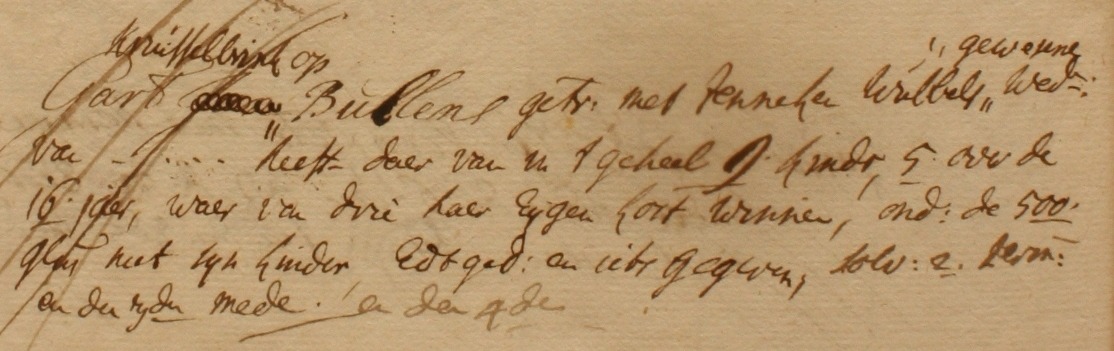 Krüsselbrink op „ gewesene
Gart Büllens getr: met Jenneken Wübbels „ Wed:
van - - .... heeft daer van in 't geheel 9 kindr, 5 over de
16 jaer, waer van drie haer Eygen kost winnen, ond: de 500
glns met syn kinder, Edt ged: en iets gegeven, solv: 2. term:
en den 3den mede. en den 4den